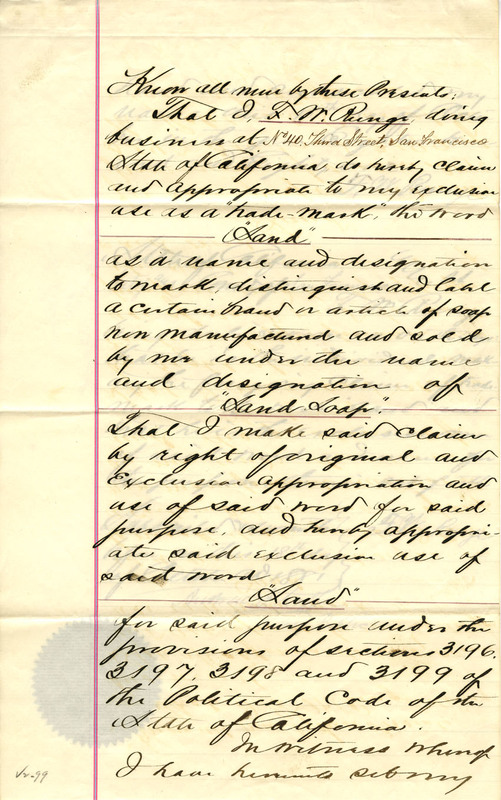 Know all men by these Presents:
That I, F. W. Runge, doing
business at No 40, Third Street, San Francisco
State of California do hereby claim
and appropriate to my exclusive
use as a "trade-mark", the word
"Sand"
as a name and designation
to mark, distinguish and label
a certain brand or article of soap
now manufactured and sold
by me under the name
and designation of
"Sand Soap".
That I make said claim
by right of original and
Exclusive appropriation and
use of said word for said
purpose, and hereby appropri-
ate said exclusive use of
said word
"Sand"
for said purpose under the
provisions of sections 3196.
3197, 3198 and 3199 of
the Political Code of the
State of California.
In Witness Whereof
I have hereunto set my